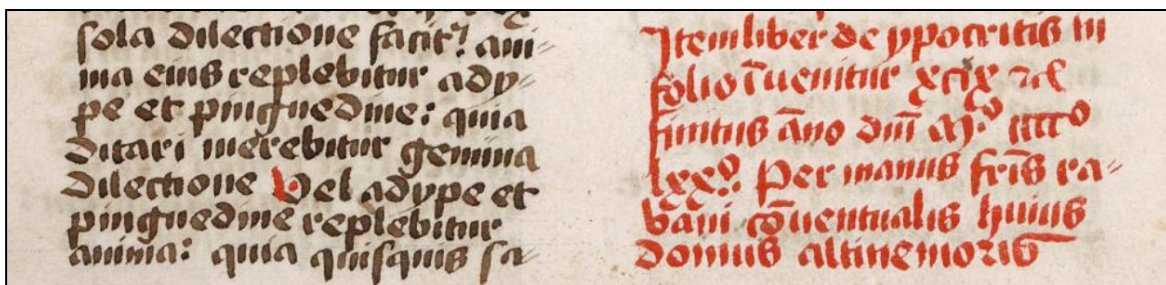 sola dilectione facit? ani-
ma eius replebitur ady-
pe et pinguedine: quia
ditari merebitur gemina
dilectione Vel adype et
pinguedine replebitur
anima: quia quisquis sa-
Item liber de ypocritis in
folio īuenitur xcix
finitus āno dn̄i Mº ccccº
lxxº. Per manus fr̄is ra-
bani cōuentualis huius
domus altinemoris